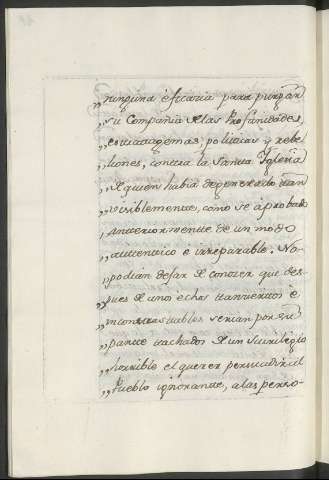 „ninguna eficacia para purgar
„su Compañia de las Profanidades,
„estratagemas, politicas y rebe-
„liones, contra la Santa Yglesia
„de quien habia degenerado tan
„visiblemente, como se à probado
„anteriormente de un modo
„autentico e irreparable. No
„podian dejar de conocer que des-
„pues de unos echos tan ciertos è
„incontrastables serian por su
„parte tachados de un Sacrilegio
„horrible el querer persuadir al
„Pueblo ignorante, a las perso-